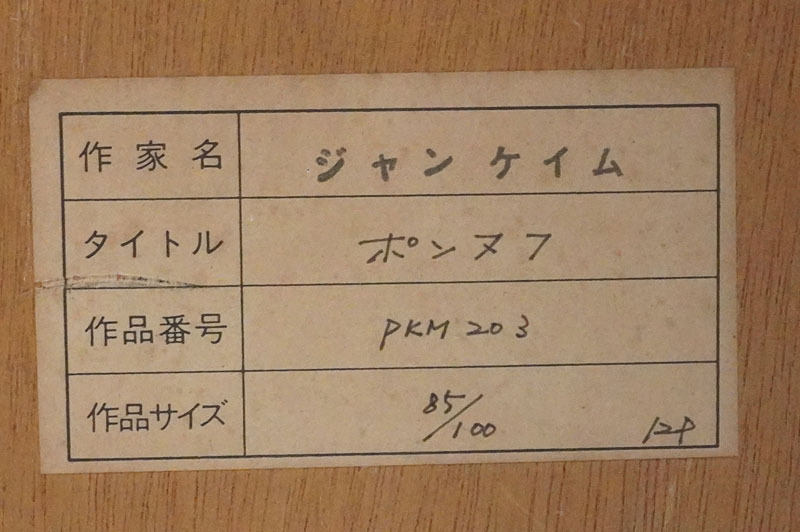 作家名 ジャンケイム
タイトル ポンヌフ
作品番号 PKM203
作品サイズ 85/100 12P